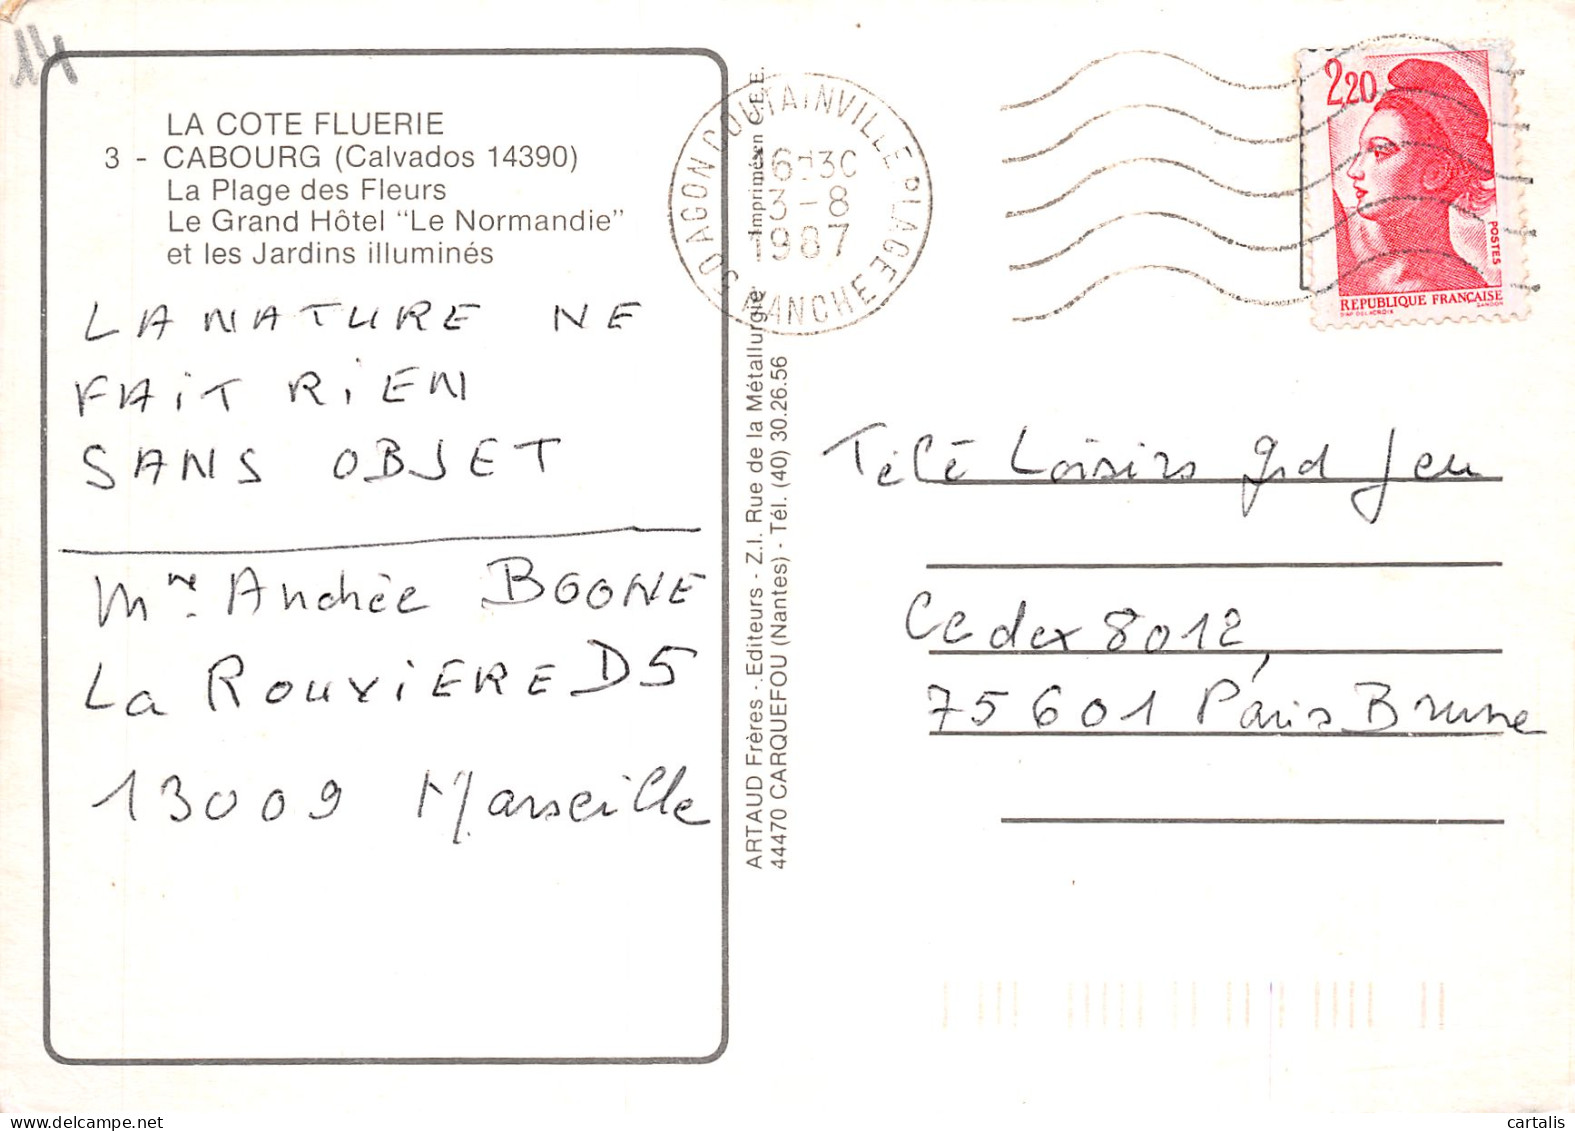 14
LA COTE FLUERIE
3 - CABOURG (Calvados 14390)
La Plage des Fleurs
Le Grand Hôtel "Le Normandie"
et les Jardins illuminés
LA NATURE NE
FAIT RIEN
SANS OBJET
Mme Andrée BOONE
La ROUVIERE D5
13009 Marseille
ARTAUD Frères - Editeurs - Z.I. Rue de la Métallurgie
44470 CARQUEFOU (Nantes) - Tél. (40) 30.26.56
Imprimé en C.E.E.
50 AGON COUTAINVILLE PLAGE
MANCHE
3-8
1987
2,20
POSTES
REPUBLIQUE FRANÇAISE
D'AP DELACROIX GANDON
Télé Loisirs grd Jeu
Cedex 8012,
75601 Paris Brune
cartalis